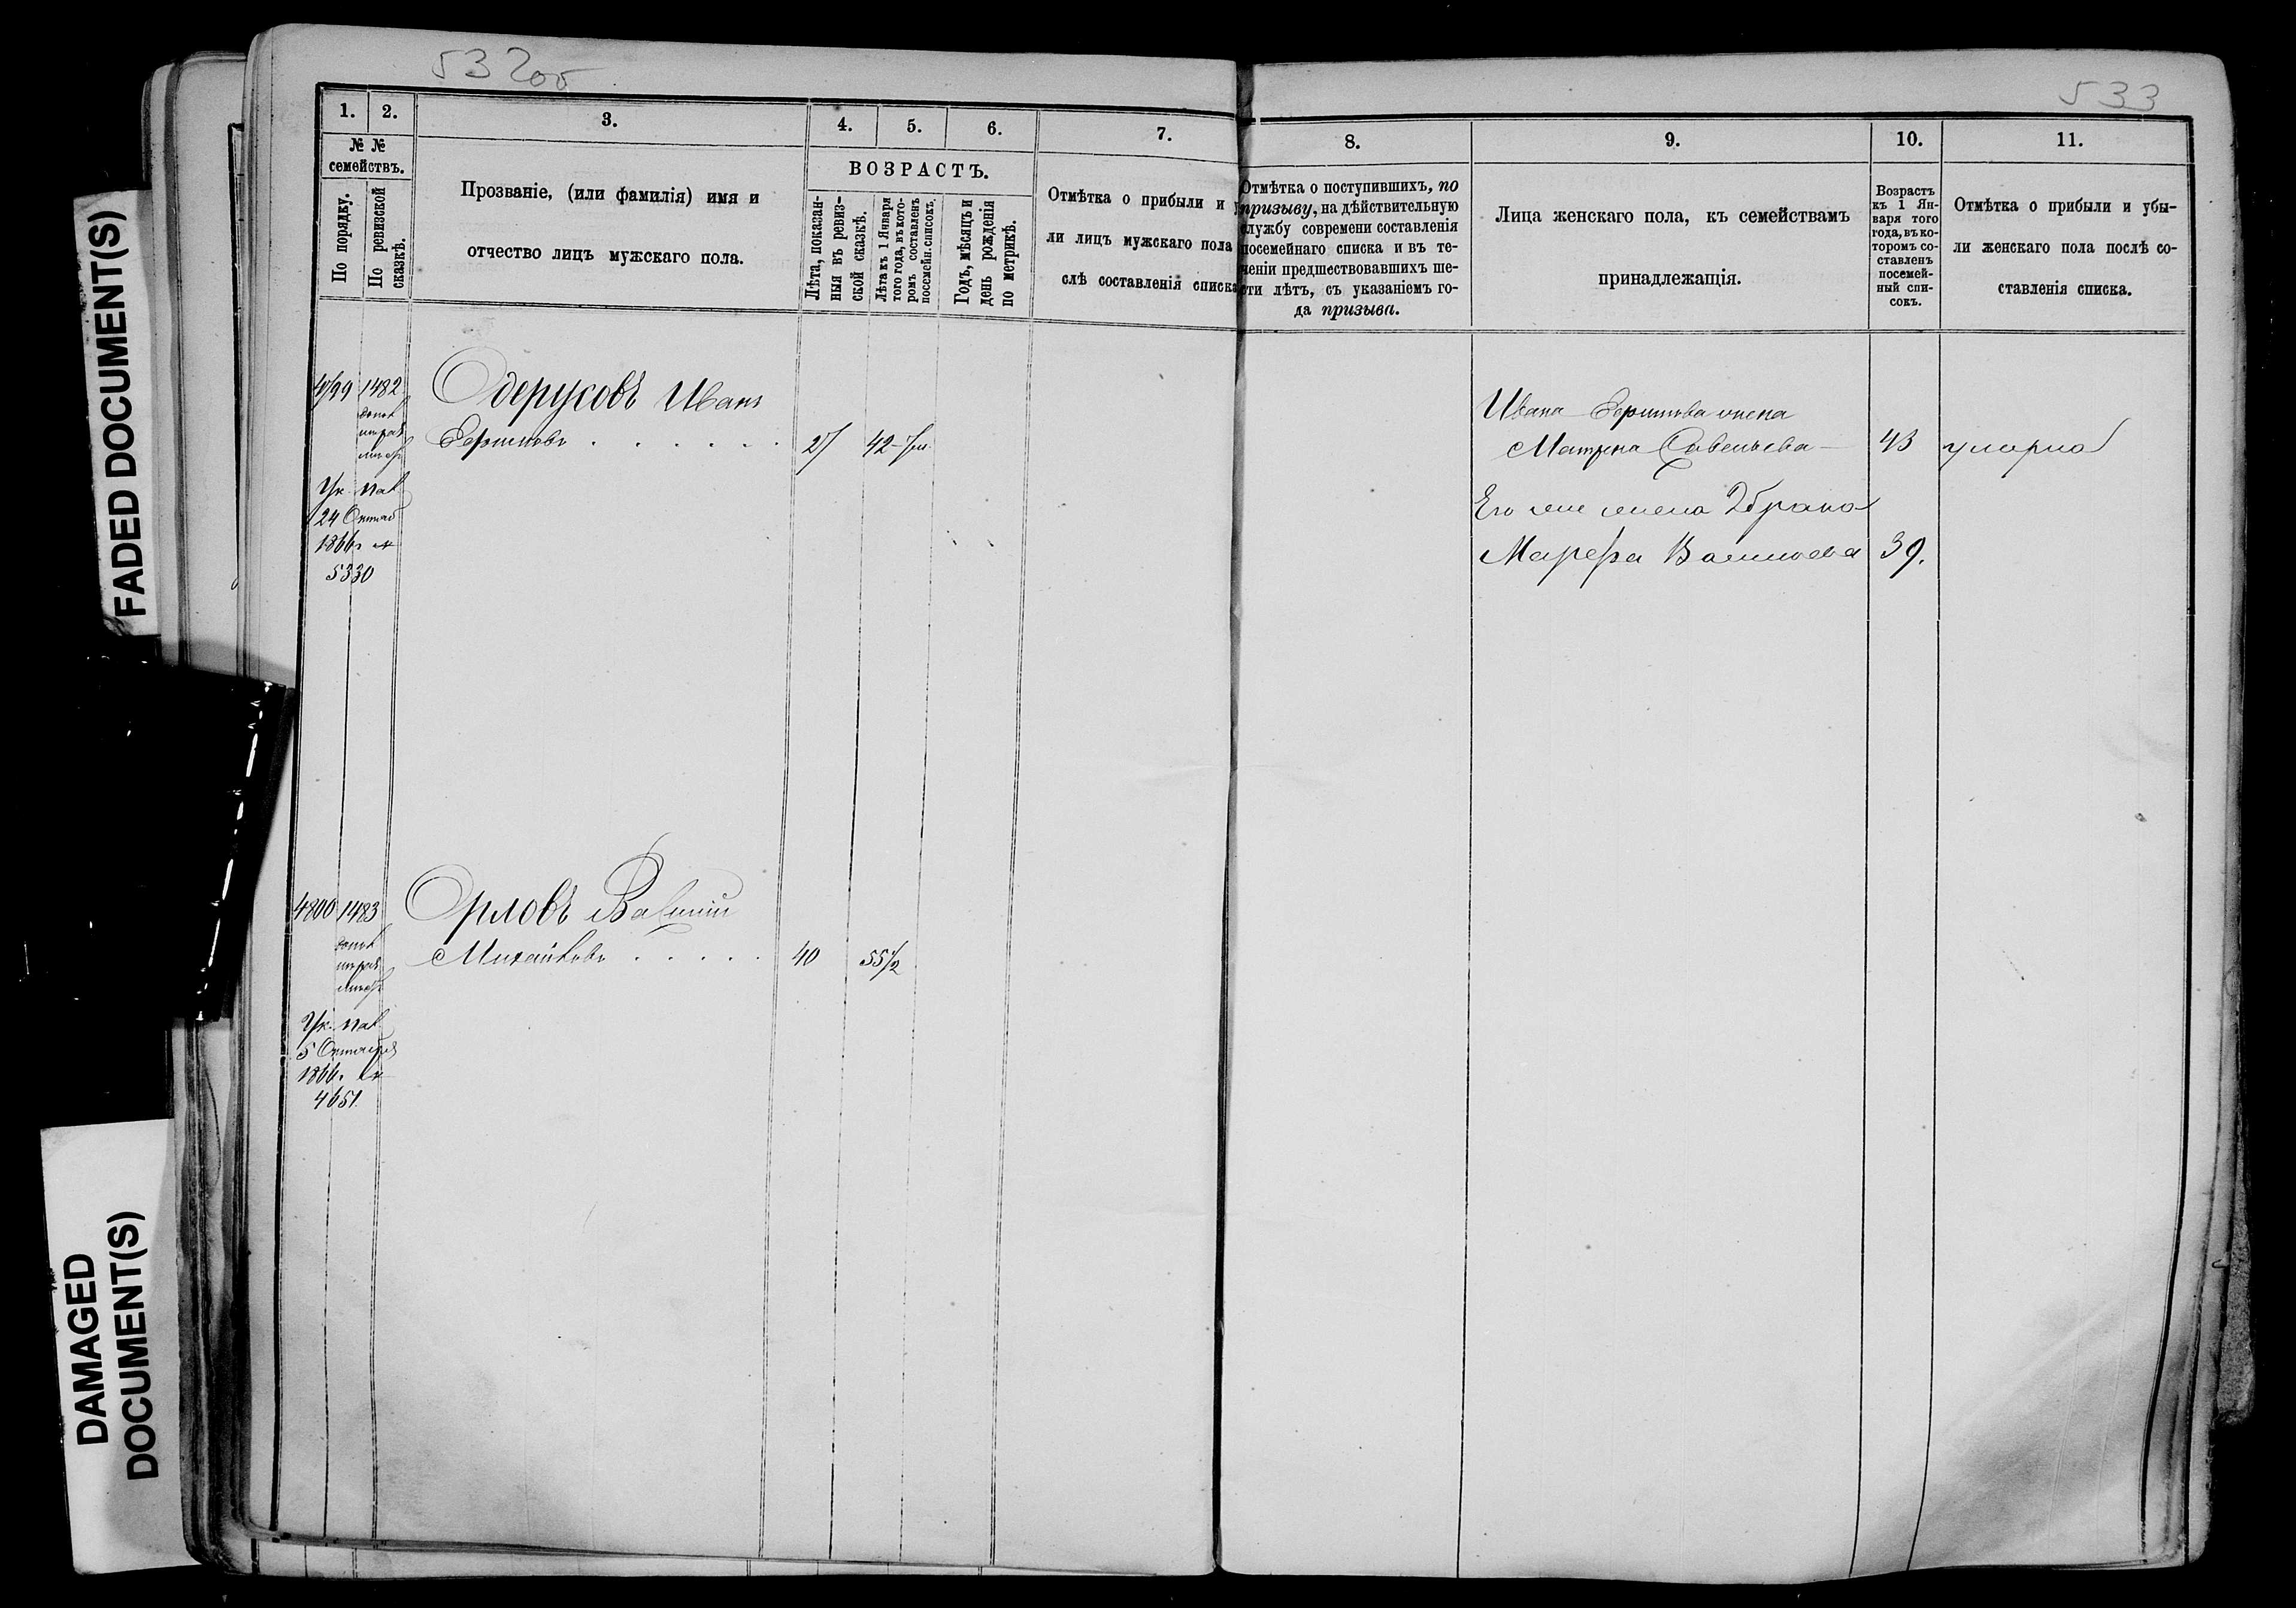 532об
533
1.
2.
3.
4.
5.
6.
7.
8.
9.
10.
11.
№ №
семействъ.
По порядку.
По ревизской
сказкѣ.
Прозваніе, (или фамилія) имя и
отчество лицъ мужскаго пола.
ВОЗРАСТЪ.
Лѣта, показан-
ныя въ ревиз-
ской сказкѣ.
Лѣта къ 1 Января
того года, въ кото-
ромъ составленъ
посемейн. списокъ.
Годъ, мѣсяцъ и
день рожденія
по метрикѣ.
Отмѣтка о прибыли и у
ли лицъ мужскаго пола
слѣ составленія списка
Отмѣтка о поступившихъ, по
призыву, на дѣйствительную
службу современи составленія
посемейнаго списка и въ те-
ченіи предшествовавшихъ ше-
сти лѣтъ, съ указаніемъ го-
да призыва.
Лица женскаго пола, къ семействамъ
принадлежащія.
Возрастъ
къ 1 Ян-
варя того
года, въ ко-
торомъ со-
ставленъ
посемей-
ный спи-
сокъ.
Отмѣтка о прибыли и убы-
ли женскаго пола послѣ со-
ставленія списка.
1482
Одерусовъ Иванъ
27 42
Ук. пал
24 Октяб
1866г №
5330
Ивана жена
Матрена Савельева 43 умерла
Его же жена 2 брака
Марефа 39.
4800 1483
Орловъ
Михайловъ . . . . . 40 55½
Ук. пал
5 Октября
1866г №
4651
FADED DOCUMENT(S)
DAMAGED
DOCUMENT(S)